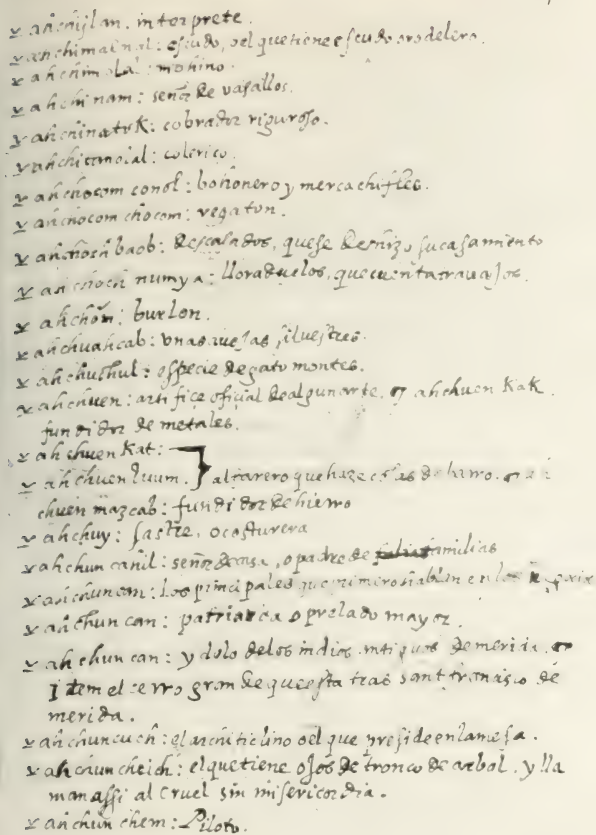 ahchijlan. interprete.
ahchimalnal: escudo, o el que tiene escudo o rodelero.
ahchimolal: mohino.
ahchinam: señor de vasallos.
ahchinatuk: cobrador riguroso.
colerico.
ahchocom conol: bohonero y mercachifles.
ahchocom chocom: regaton.
ahchoch baob: descasados, que se deshizo su casamiento
ahchoch numya: lloraduelos, que cuenta trauajos.
ahchom: burlon.
ahchuahcab: vnas auejas siluestres.
ahchuchul: especie de gato montes.
ahchuen: artifice oficial de algun arte. ahchuen kak.
fundidor de metales.
ahchuen kat:
ahchuen luum. } alfarero que haze cosas de barro. ah
chuen mazcab: fundidor de hierro
ahchuy: sastre, o costurera
ahchun canil: señor de casa, o padre de familias
ahchuncan: los principales que primero hablan en
ahchun can: patriarca o prelado mayor.
ahchun can: ydolo de los indios antiguos de merida.
Item el cerro grande que esta tras sant françisco de
merida.
ahchuncuch: el architiclino o el que preside en la mesa.
ahchuncheich: el que tiene ojos de tronco de arbol. y lla
man assi al cruel sin misericordia.
ahchun chem: Piloto.